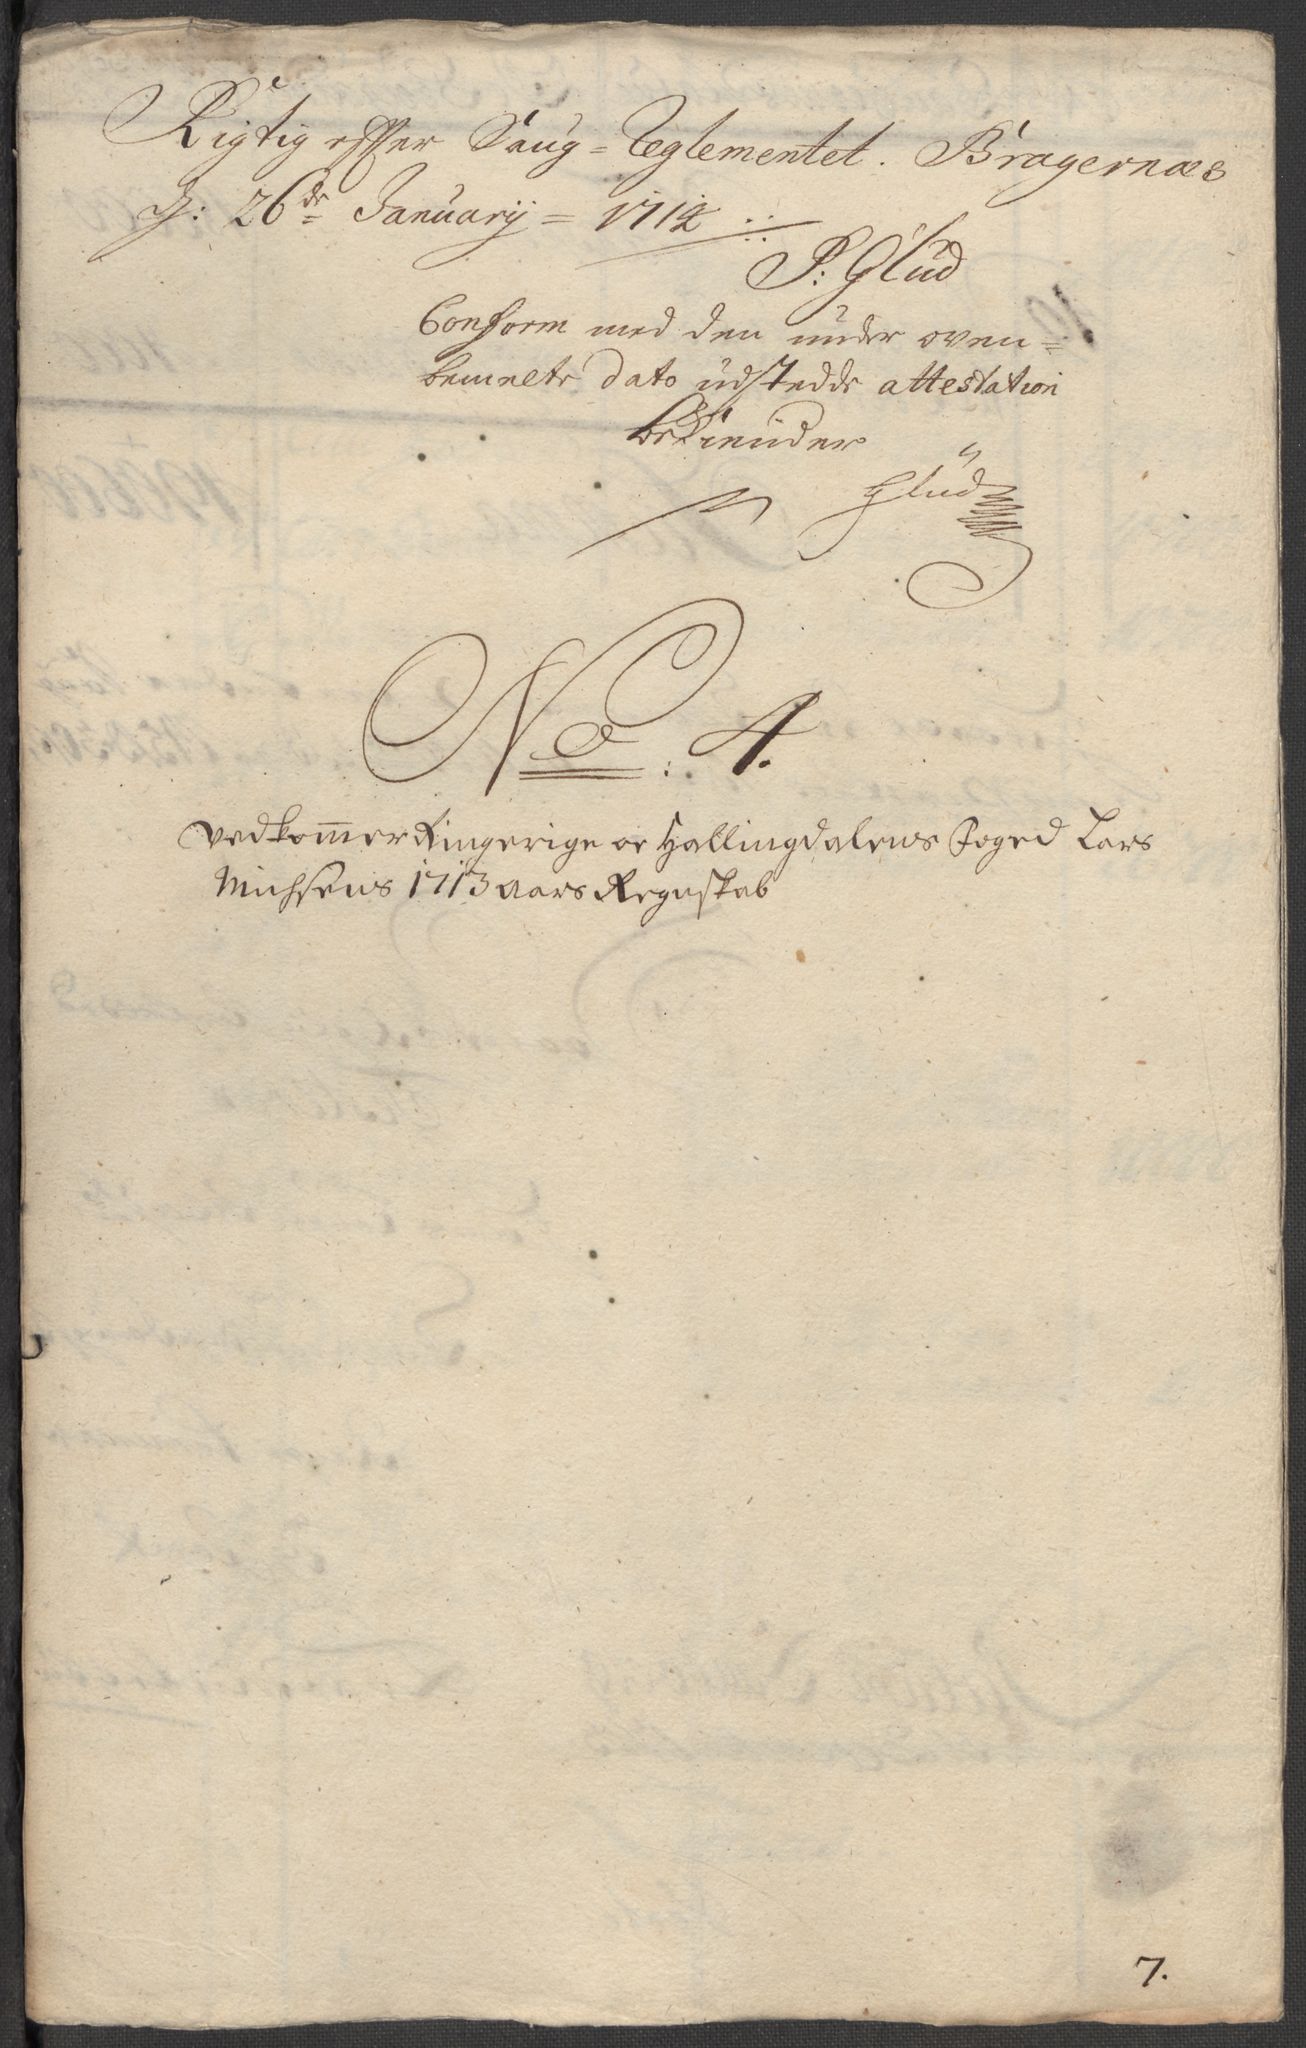 Rigtig effter Saug-Reglementet. Bragernæs
d: 26de January = 1714
P: Glud
Conform med den under oven=
bemelte dato udstedde attestation
bekiender
Glud
No: 4.
Vedkommer Ringerige oc Hallingdalens Foged Lars
Michsens 1713 aars Regnskab
7.